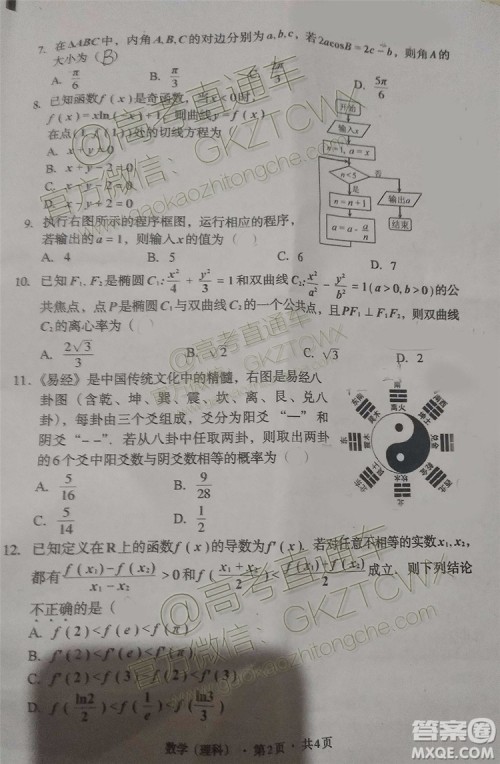 7. 在△ABC中，内角A,B,C的对边分别为a,b,c，若2acosB=2c-b，则角A的
大小为（B）
A. π/6 B. π/3 D. 5π/6
8. 已知函数f(x)是奇函数，当x<0时，
f(x)=xln(-x)+1，则曲线y=f(x)
在点(1,f(1))处的切线方程为
A. x+y=0
B. x+y-2=0
C. x-y=0
D. x-y+2=0
9. 执行右图所示的程序框图，运行相应的程序，
若输出的a=1，则输入x的值为（ ）
A. 4 B. 5 C. 6 D. 7
开始
输入x
n=1, a=x
n<5
否
是
n=n+1
输出a
结束
10. 已知F₁、F₂是椭圆C₁: x²/4+y²/3=1和双曲线C₂: x²/a²-y²/b²=1(a>0,b>0)的公
共焦点，点P是椭圆C₁与双曲线C₂的一个公共点，且PF₁⊥F₁F₂，则双曲线
C₂的离心率为（ ）
A. 2√3/3 B. √2 C. √3 D. 2
11. 《易经》是中国传统文化中的精髓，右图是易经八
卦图（含乾、坤、巽、震、坎、离、艮、兑八
卦），每卦由三个爻组成，爻分为阳爻“—”和
阴爻“- -”．若从八卦中任取两卦，则两卦
的6个爻中阳爻数与阴爻数相等的概率为（ ）
A. 5/16 B. 9/28
C. 5/14
南
离火
北
12. 已知定义在R上的函数f(x)的导数为f'(x)，若对任意不相等的实数x₁,x₂，
都有(f(x₁)-f(x₂))/(x₁-x₂)>0和f((x₁+x₂)/2)<(f(x₁)+f(x₂))/2成立，则下列结论
不正确的是（
A. f(2)<f(e)<f(π)
B. f'(π)<f'(e)<f'(2)
C. f(2)<f(3)<f'(3)
D. f(ln2/2)<f(1/e)<f(ln3/3)
数学（理科）·第2页·共4页
@高考直通车
官方微信：GKZTCWX
gaokaozhitongche.com
@高考直通车
GKZTCWX
@高考直通车
官方微信：GKZTCWX
gaokaozhitongche.com
答案圈
MXQE.COM